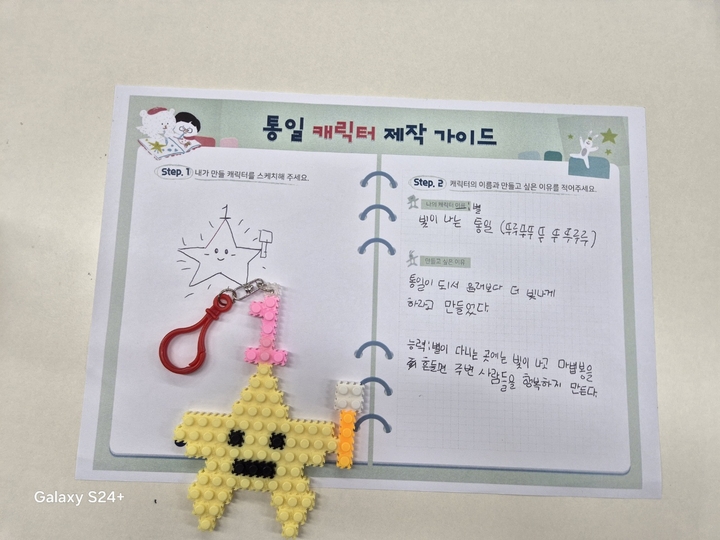 통일 캐릭터 제작 가이드
Step. 1 내가 만들 캐릭터를 스케치해 주세요.
1
Step. 2 캐릭터의 이름과 만들고 싶은 이유를 적어주세요.
나의 캐릭터 이름: 별
빛이 나는 통일
만들고 싶은 이유
통일이 되서 우리보다 더 빛나게
하라고 만들었다.
능력: 별이 다니는 곳에는 빛이 나고 마법봉을
흔들면 주변 사람들을 행복하게 만든다.
Galaxy S24+